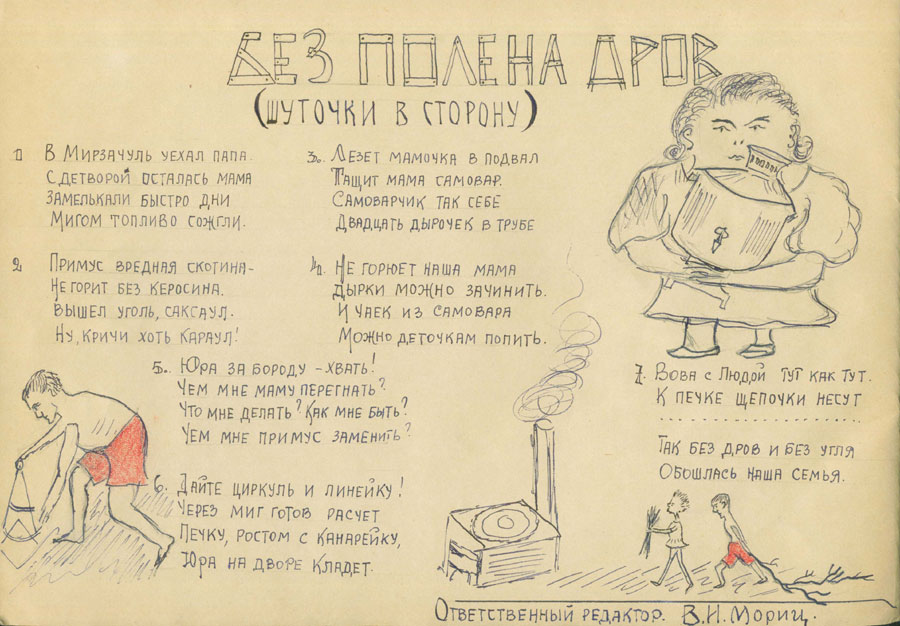 БЕЗ ПОЛЕНА ДРОВ
(ШУТОЧКИ В СТОРОНУ)
1) В МИРЗАЧУЛЬ УЕХАЛ ПАПА.
С ДЕТВОРОЙ ОСТАЛАСЬ МАМА
ЗАМЕЛЬКАЛИ БЫСТРО ДНИ
МИГОМ ТОПЛИВО СОЖГЛИ.
2. ПРИМУС ВРЕДНАЯ СКОТИНА-
НЕ ГОРИТ БЕЗ КЕРОСИНА.
ВЫШЕЛ УГОЛЬ, САКСАУЛ.
НУ, КРИЧИ ХОТЬ КАРАУЛ!
3. ЛЕЗЕТ МАМОЧКА В ПОДВАЛ
ТАЩИТ МАМА САМОВАР.
САМОВАРЧИК ТАК СЕБЕ
ДВАДЦАТЬ ДЫРОЧЕК В ТРУБЕ
4. НЕ ГОРЮЕТ НАША МАМА
ДЫРКИ МОЖНО ЗАЧИНИТЬ.
И ЧАЕК ИЗ САМОВАРА
МОЖНО ДЕТОЧКАМ ПОПИТЬ.
5. ЮРА ЗА БОРОДУ – ХВАТЬ!
ЧЕМ МНЕ МАМУ ПЕРЕГНАТЬ?
ЧТО МНЕ ДЕЛАТЬ? КАК МНЕ БЫТЬ?
ЧЕМ МНЕ ПРИМУС ЗАМЕНИТЬ?
6. ДАЙТЕ ЦИРКУЛЬ И ЛИНЕЙКУ!
ЧЕРЕЗ МИГ ГОТОВ РАСЧЕТ
ПЕЧКУ, РОСТОМ С КАНАРЕЙКУ,
ЮРА НА ДВОРЕ КЛАДЕТ.
7. ВОВА С ЛЮДОЙ ТУТ КАК ТУТ.
К ПЕЧКЕ ЩЕПОЧКИ НЕСУТ
ТАК БЕЗ ДРОВ И БЕЗ УГЛЯ
ОБОШЛАСЬ НАША СЕМЬЯ.
ОТВЕТСТВЕННЫЙ РЕДАКТОР. В.Н. МОРИЦ.